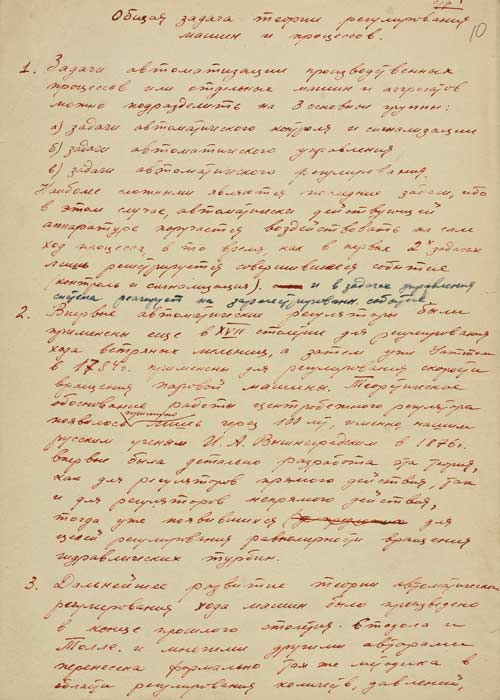 10
Общая задача теории регулирования
машин и процессов.
1. Задачи автоматизации производственных
процессов или отдельных машин и агрегатов
можно подразделить на 3 основные группы:
а) задачи автоматического контроля и сигнализации
б) задачи автоматического управления
в) задачи автоматического регулирования.
Наиболее сложными являются последние задачи, ибо
в этом случае, автоматически действующей
аппаратуре поручается воздействовать на сам
ход процесса, в то время, как в первых 2х задачах
лишь регистрируется совершившееся событие
(контроль и сигнализация). и в задачах управления
система реагирует на зарегистрированн. событие
2. Впервые автоматические регуляторы были
применены еще в XVII столетие для регулирования
хода ветряных мельниц, а затем уже Уаттом
в 1784г. применены для регулирования скорости
вращения паровой машины. Теоретическое
обоснование работы центробежного регулятора
появилось лишь через 100 лет, именно нашим
русским ученым И. А. Вышнеградским в 1876г.
впервые была детально разработа эта теория,
как для регуляторов прямого действия, так
и для регуляторов непрямого действия,
тогда уже появившихся для
целей регулирования равномерности вращения
гидравлических турбин.
3. Дальнейшее развитие теории автоматическ
регулирования хода машин было произведено
в конце прошлого столетия Стодола и
Толле. и многими другими авторами
перенесена формально та же методика в
области регулирования количеств, давлений